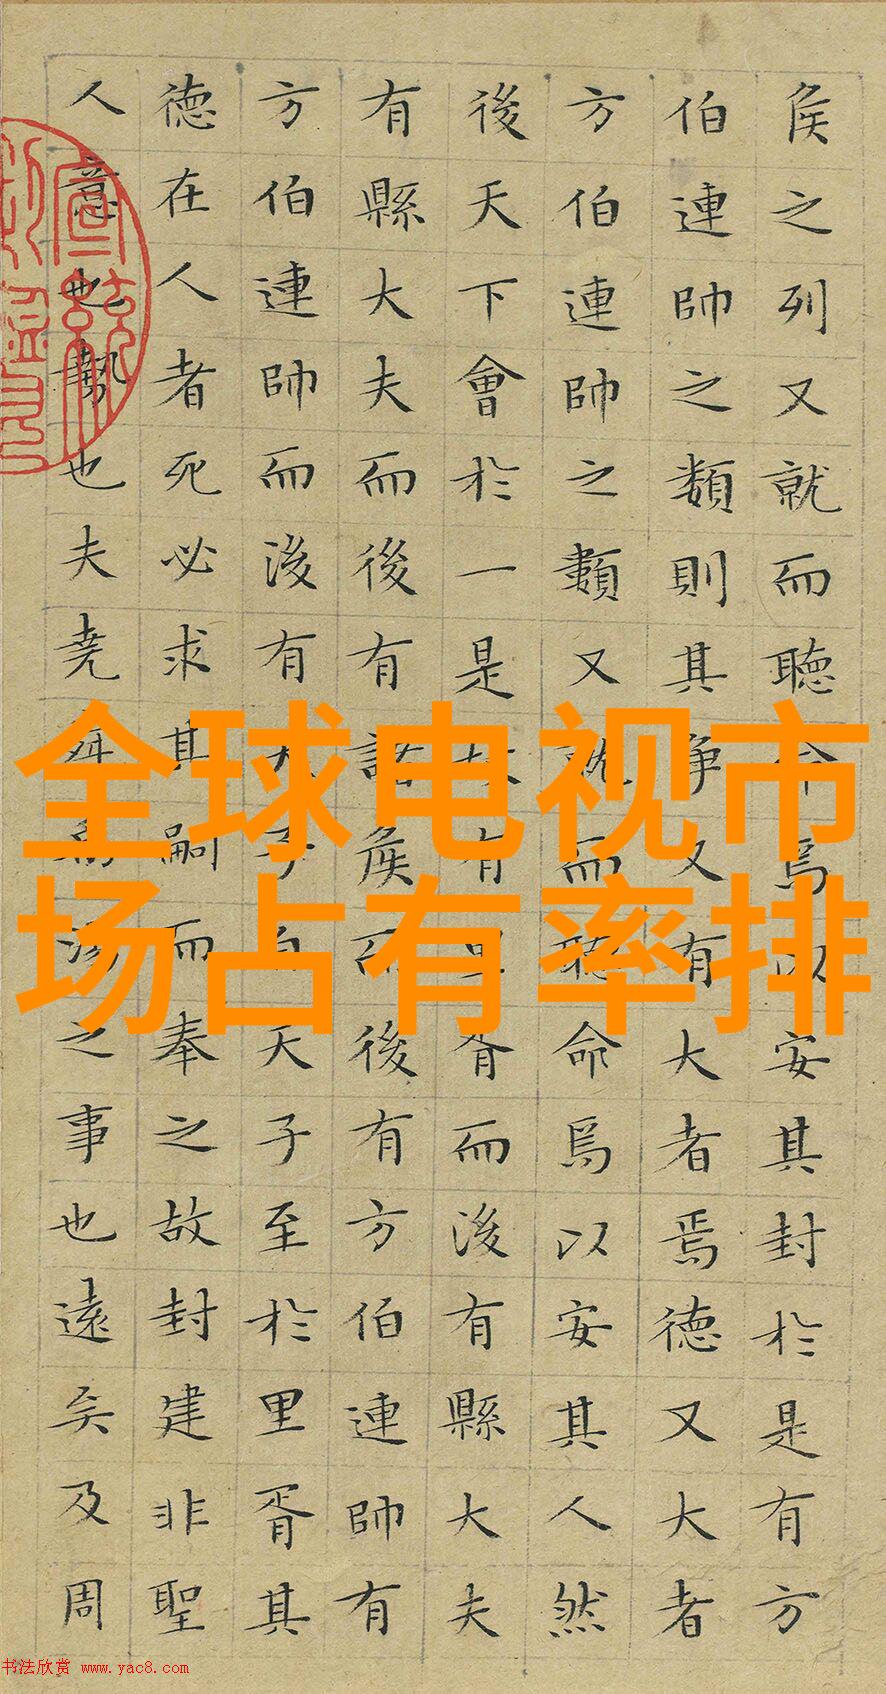 侯之列又就而聽命焉以安其封於是有方
伯連帥之類則其爭又有大者焉德又大者
方伯連帥之類又就而聽命焉以安其人然
後天下會於一是故有里胥而後有縣大夫
有縣大夫而後有諸侯而後有方伯連帥有
方伯連帥而後有天子自天子至於里胥其
德在人者死必求其嗣而奉之故封建非聖
人意也勢也夫堯舜禹湯之事也遠矣及周
全球电视市
场占有率排
书法欣赏 www.yac8.com